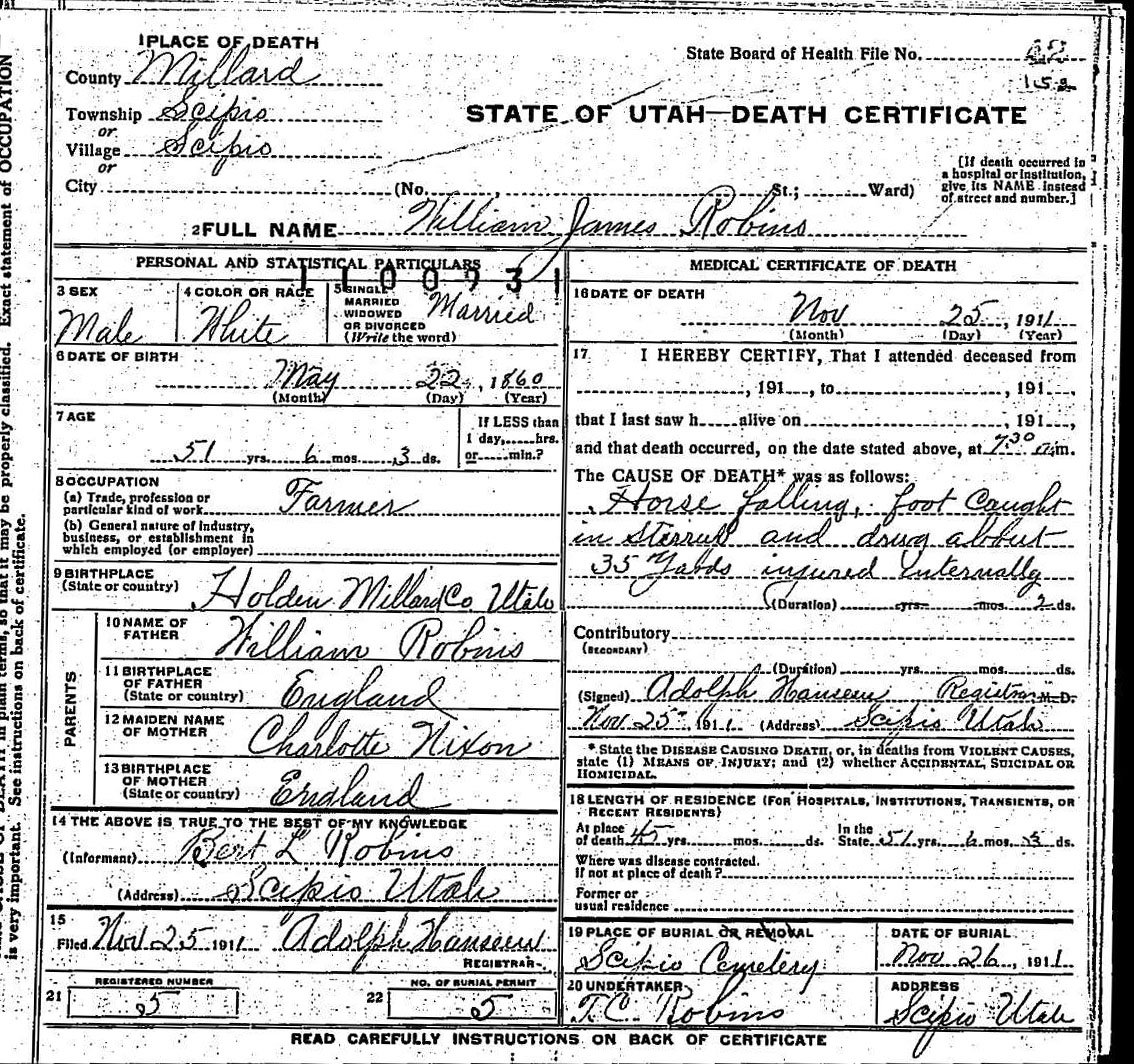 1 PLACE OF DEATH
County Millard
Township Scipio
or
Village Scipio
or
City (No. , St.; Ward)
State Board of Health File No.
STATE OF UTAH—DEATH CERTIFICATE
[If death occurred in
a hospital or institution,
give its NAME instead
of street and number.]
2 FULL NAME William James Robins
PERSONAL AND STATISTICAL PARTICULARS
1100931
3 SEX
Male
4 COLOR OR RACE
White
5 SINGLE
MARRIED
WIDOWED
OR DIVORCED
(Write the word)
Married
6 DATE OF BIRTH
May 22, 1860
(Month) (Day) (Year)
7 AGE
51 yrs. 6 mos. 3 ds.
If LESS than
1 day, hrs.
or min.?
8 OCCUPATION
(a) Trade, profession or
particular kind of work Farmer
(b) General nature of Industry,
business, or establishment in
which employed (or employer)
9 BIRTHPLACE
(State or country) Holden Millard Co Utah
PARENTS
10 NAME OF
FATHER William Robins
11 BIRTHPLACE
OF FATHER
(State or country) England
12 MAIDEN NAME
OF MOTHER Charlotte Nixon
13 BIRTHPLACE
OF MOTHER
(State or country) England
14 THE ABOVE IS TRUE TO THE BEST OF MY KNOWLEDGE
(Informant) Bert L Robins
(Address) Scipio Utah
15
Filed Nov 25 1911 Adolph Hansen
REGISTRAR
21 REGISTERED NUMBER
5
22 NO. OF BURIAL PERMIT
5
MEDICAL CERTIFICATE OF DEATH
16 DATE OF DEATH
Nov 25, 1911
(Month) (Day) (Year)
17 I HEREBY CERTIFY, That I attended deceased from
, 191 , to , 191
that I last saw h alive on , 191 ,
and that death occurred, on the date stated above, at 7.30 a.m.
The CAUSE OF DEATH* was as follows:
Horse falling, foot Caught
in Stirrup and drug about
35 Yards injured Internally
(Duration) yrs. mos. 2 ds.
Contributory
(SECONDARY)
(Duration) yrs. mos. ds.
(Signed) Adolph Hansen Registrar M. D.
Nov 25 1911 (Address) Scipio Utah
*State the DISEASE CAUSING DEATH, or, in deaths from VIOLENT CAUSES,
state (1) MEANS OF INJURY; and (2) whether ACCIDENTAL, SUICIDAL OR
HOMICIDAL.
18 LENGTH OF RESIDENCE (FOR HOSPITALS, INSTITUTIONS, TRANSIENTS, OR
RECENT RESIDENTS)
At place
of death 45 yrs. mos. ds.
In the
State 51 yrs. 6 mos. 3 ds.
Where was disease contracted.
If not at place of death?
Former or
usual residence
19 PLACE OF BURIAL OR REMOVAL
Scipio Cemetery
DATE OF BURIAL
Nov 26, 1911
20 UNDERTAKER
T. C. Robins
ADDRESS
Scipio Utah
READ CAREFULLY INSTRUCTIONS ON BACK OF CERTIFICATE
so that it may be properly classified. Exact statement of OCCUPATION
is very important. See instructions on back of certificate.